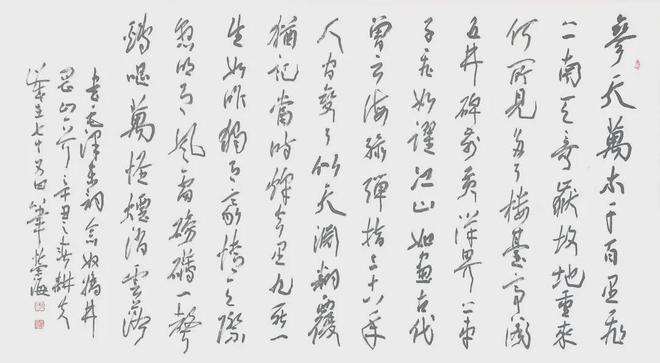 參天萬木千百里飛
上南天奇嶽故地重來
何所見多了樓臺亭閣
五井碑前黃洋界上車
子飛如躍江山如畫古代
曾云海綠彈指三十八年
人間變了似天淵翻覆
猶記當時烽火里九死一
生如昨獨有豪情天際
懸明月風雷磅礴一聲
鷄唱萬怪煙消雲落
書毛澤東詞念奴嬌井
岡山辛丑之春耕夫
年七十又四筆海